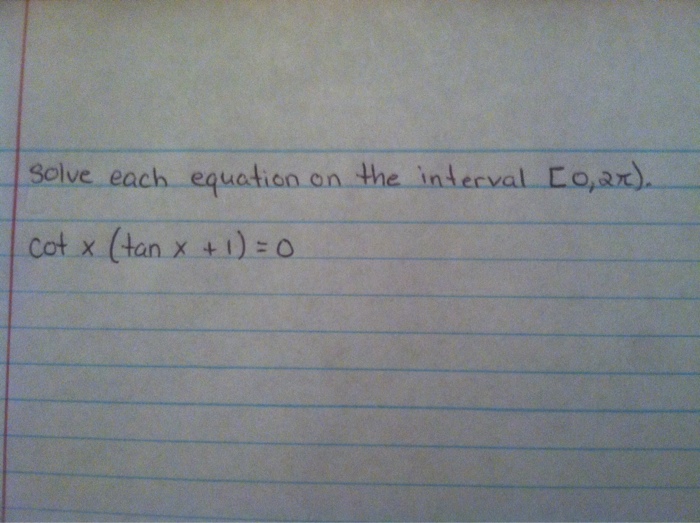 Solve each equation on the interval [0,2π).
cot x (tan x + 1) = 0